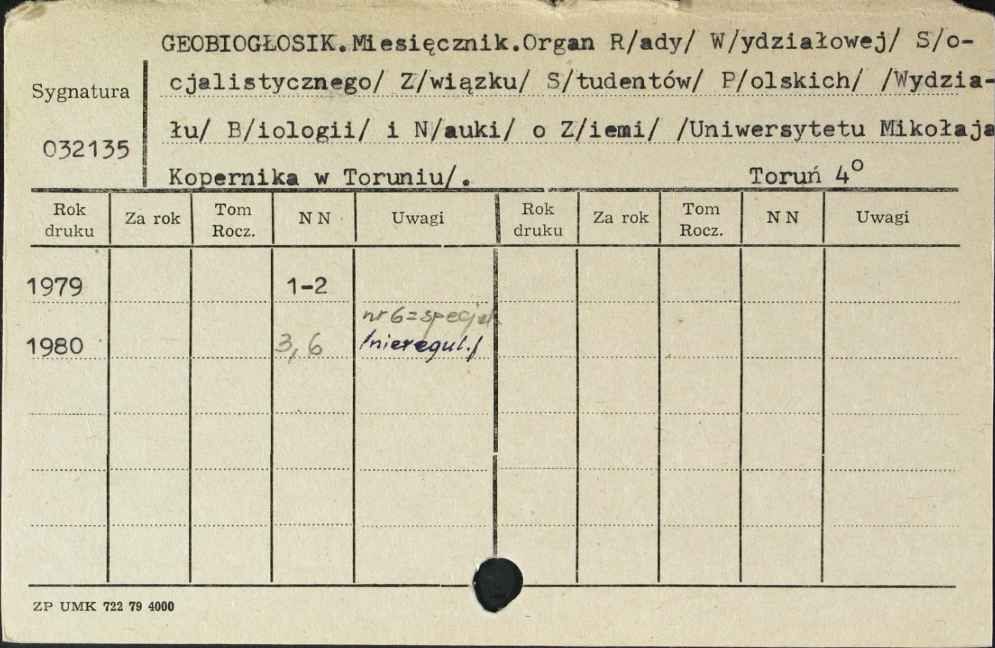 GEOBIOGŁOSIK.Miesięcznik.Organ R/ady/ W/ydziałowej/ S/o-
Sygnatura
cjalistycznego/ Z/wiązku/ S/tudentów/ P/olskich/ /Wydzia-
032135
łu/ B/iologii/ i N/auki/ o Z/iemi/ /Uniwersytetu Mikołaja
Kopernika w Toruniu/. Toruń 4°
Rok druku Za rok Tom Rocz. N N Uwagi Rok druku Za rok Tom Rocz. N N Uwagi
1979 1-2
nr 6 = specjal.
1980 3, 6 /nieregul./
ZP UMK 722 79 4000